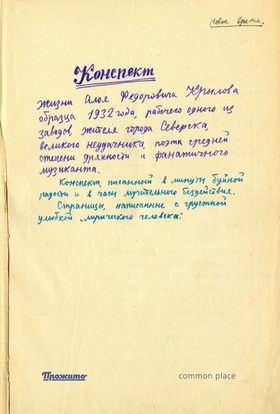 Новое время.
Конспект
жизни Алоя Федоровича Крылова
образца 1932 года, рабочего одного из
заводов жителя города Северска,
великого неудачника, поэта средней
степени дряхности и фанатичного
музыканта.
Конспект, писанный в минуты буйной
радости и в часы мучительного бездействия.
Страницы, написанные с грустной
улыбкой „лирического человека“.
Прожито
common place